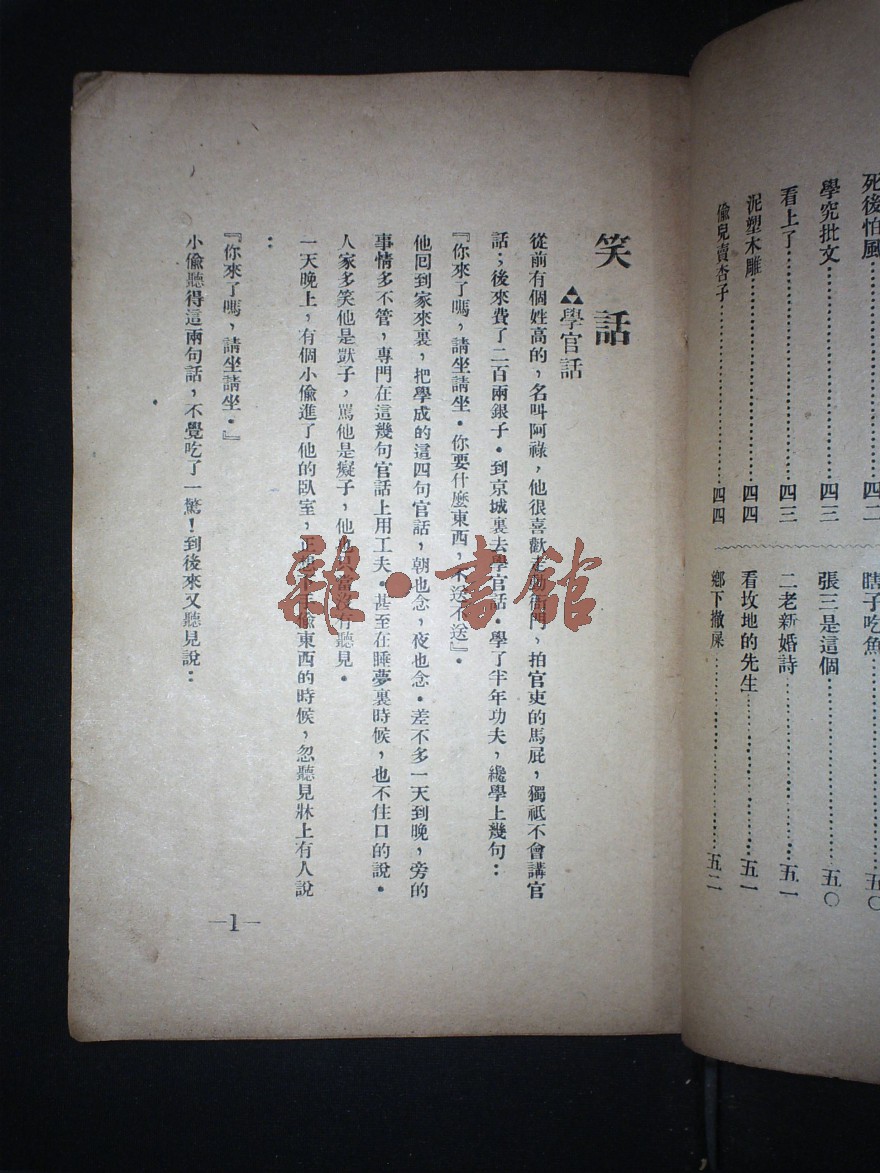 死後怕風……四二
學究批文……四三
看上了……四三
泥塑木雕……四四
偷兒賣杏子……四四
瞎子吃魚……五〇
張三是這個……五〇
二老新婚詩……五一
看坟地的先生……五一
鄉下撒屎……五二
笑話
學官話
從前有個姓高的，名叫阿祿，他很喜歡走動衙門，拍官吏的馬屁，獨祗不會講官
話；後來費了二百兩銀子・到京城裏去學官話・學了半年功夫，纔學上幾句：
『你來了嗎，請坐請坐・你要什麼東西，不送不送』・
他囘到家來裏，把學成的這四句官話，朝也念，夜也念・差不多一天到晚，旁的
事情多不管，專門在這幾句官話上用工夫・甚至在睡夢裏時候，也不住口的說・
人家多笑他是獃子，罵他是癡子，他也只當沒有聽見・
一天晚上，有個小偷進了他的臥室，正想下手偷東西的時候，忽聽見牀上有人說
：
『你來了嗎，請坐請坐・』
小偷聽得這兩句話，不覺吃了一驚！到後來又聽見說：
—1—
雜・書館